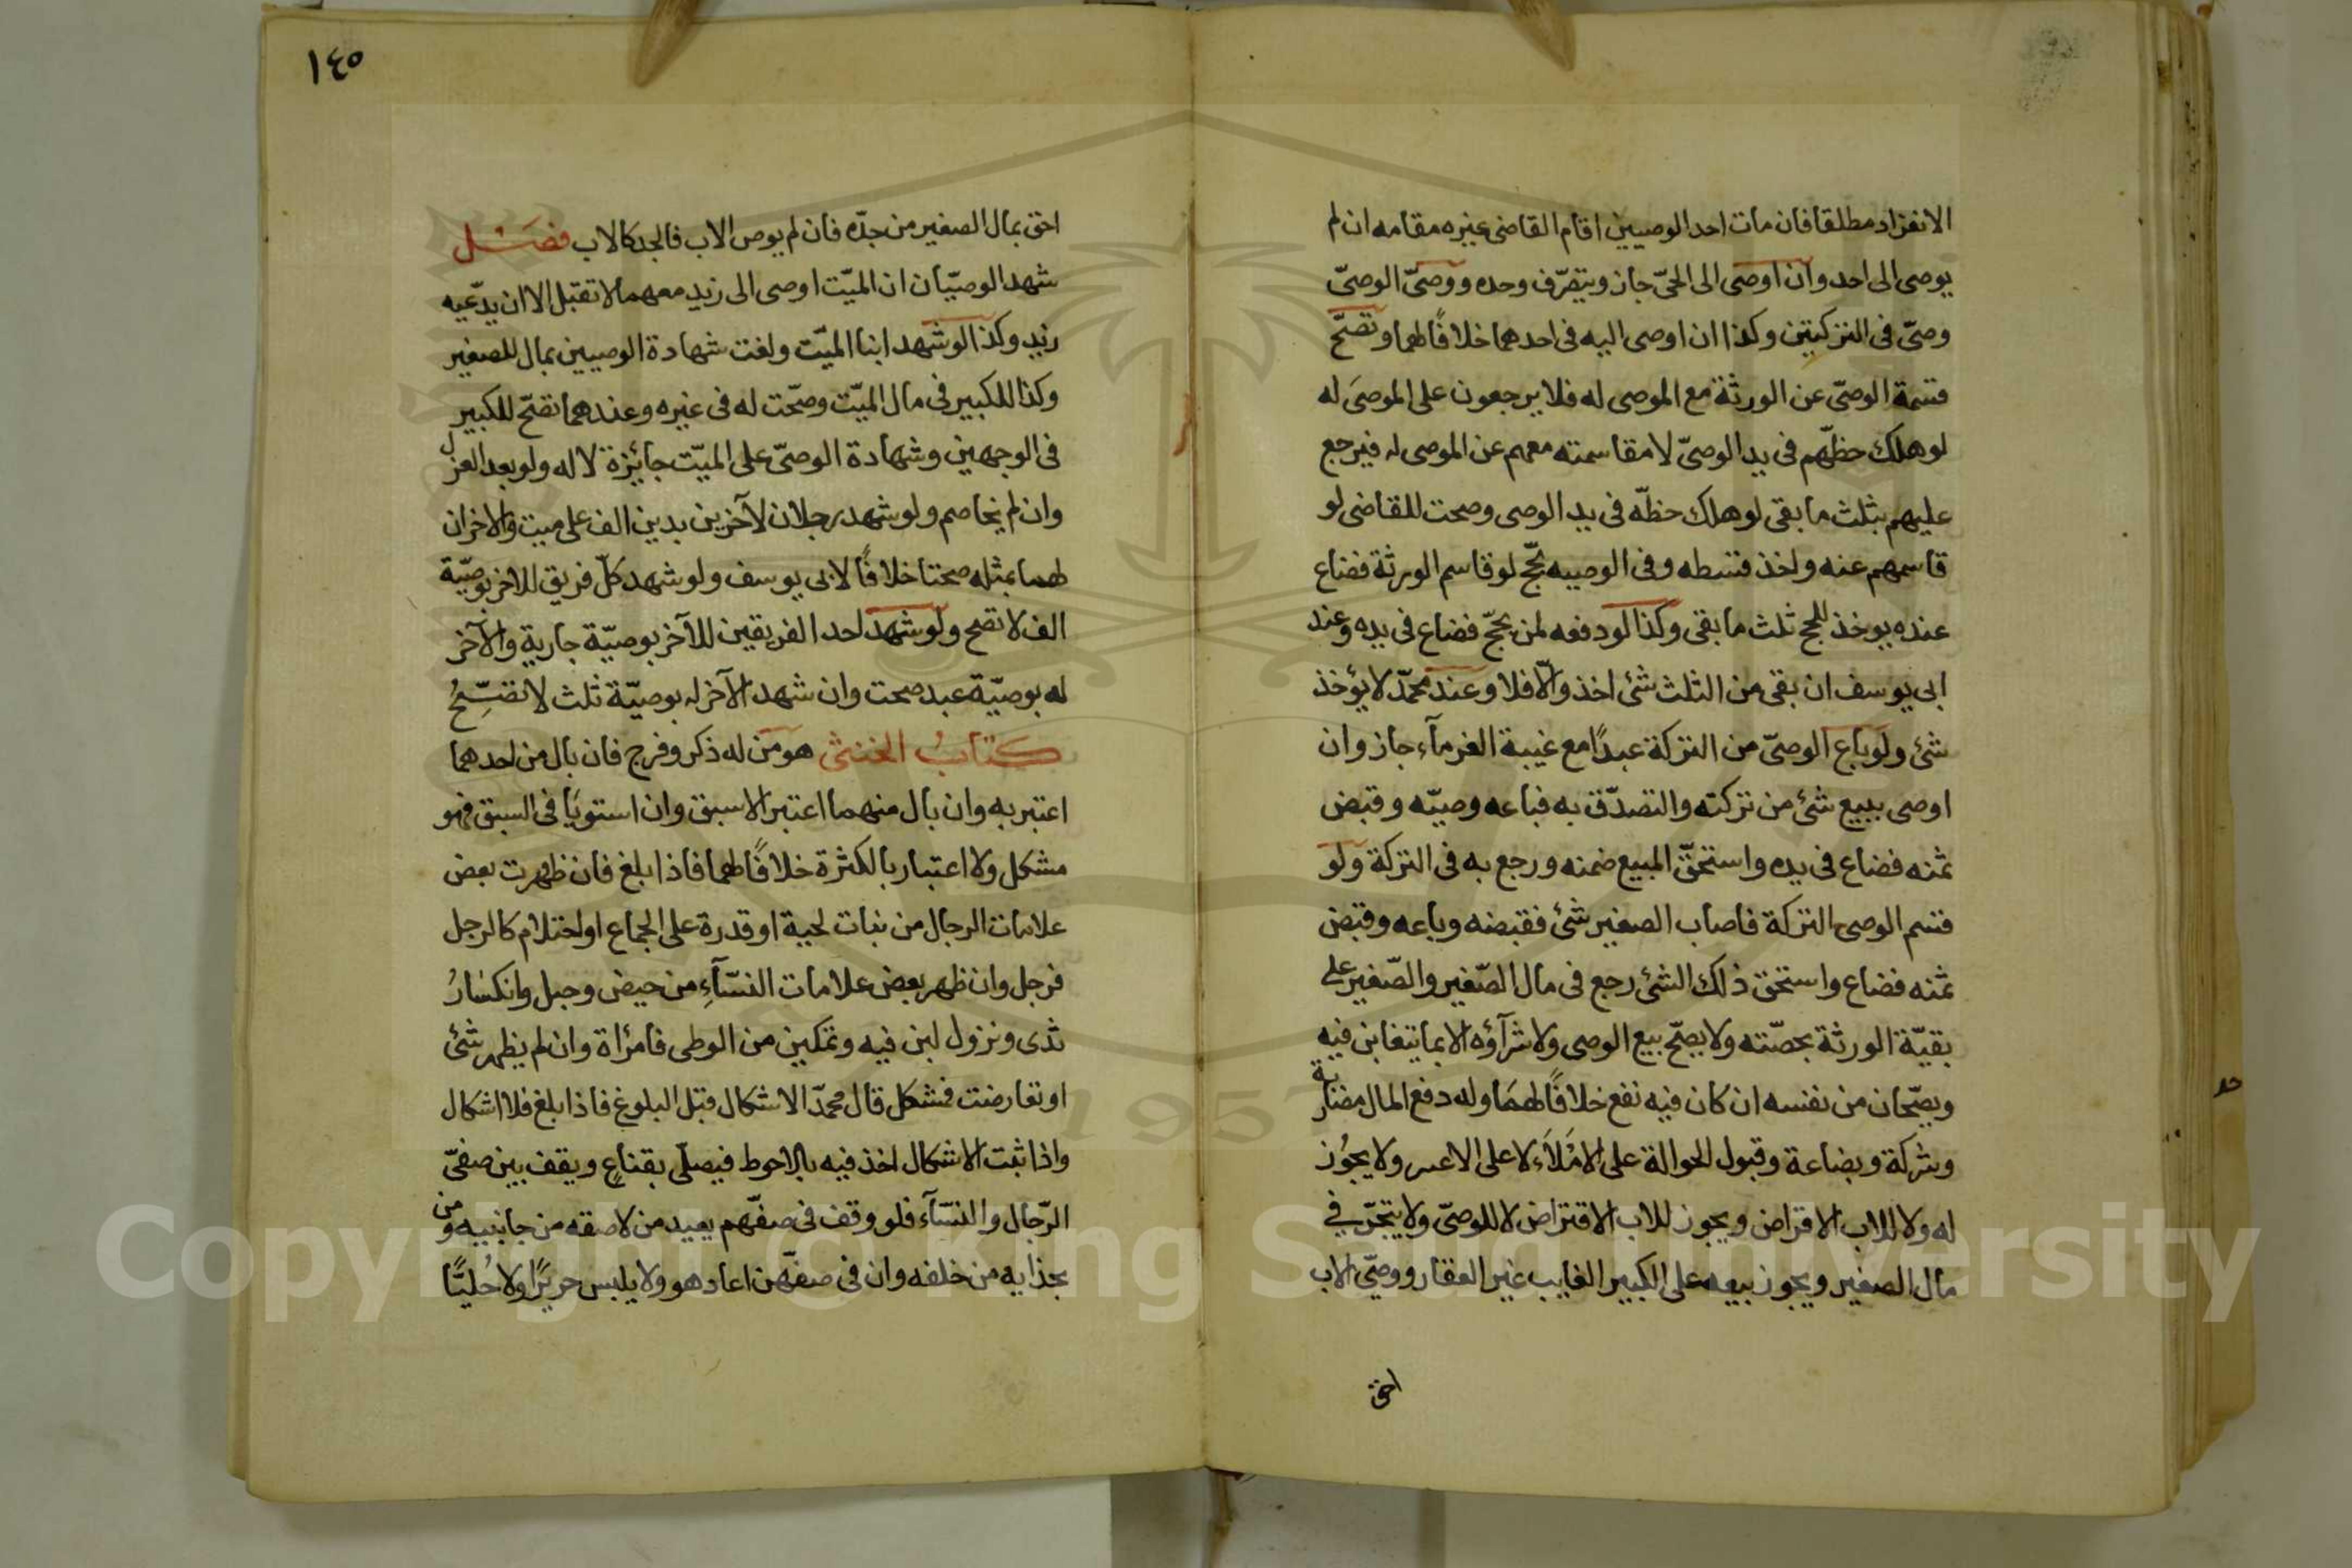 الانفراد مطلقا فان مات احد الوصيين اقام القاضى غيره مقامه ان لم
يوصى الى احد وان اوصى الى الحىّ جاز ويتصرّف وحده ووصىّ الوصىّ
وصىّ فى التركتين وكذا ان اوصى اليه فى احدهما خلافًا لهما وتصحّ
قسمة الوصىّ عن الورثة مع الموصى له فلا يرجعون على الموصَى له
لو هلك حظّهم فى يد الوصىّ لا مقاسمته معهم عن الموصى له فيرجع
عليهم بثلث ما بقى لو هلك حظّه فى يد الوصى وصحت للقاضى لو
قاسمهم عنه واخذ قسطه وفى الوصيه بحّج لو قاسم الورثة فضاع
عنده يوخذ للحج ثلث ما بقى وكذا لو دفعه لمن يحجّ فضاع فى يده وعند
ابى يوسف ان بقى من الثلث شئ اخذ والّا فلا وعند محمّد لا يؤخذ
شئ ولو باع الوصىّ من التركة عبدًا مع غيبة الغرمآء جاز وان
اوصى ببيع شئ من تركته والتصدّق به فباعه وصيّه وقبض
ثمنه فضاع فى يده واستحقّ المبيع ضمنه ورجع به فى التركة ولو
قسم الوصى التركة فاصاب الصغير شئ فقبضه وباعه وقبض
ثمنه فضاع واستحق ذلك الشئ رجع فى مال الصّغير والصّغير على
بقيّة الورثة بحصّته ولا يصحّ بيع الوصى ولا شرآؤه الا بما يتغابن فيه
ويصحّان من نفسه ان كان فيه نفع خلافًا لهمَا وله دفع المال مضاربة
وشركة وبضاعة وقبول الحوالة على الامْلَاَء لا على الاعسر ولا يجوُز
له ولا للاب الاقراض ويجوز للاب الاقتراض لا للوصىّ ولا يتّجر في
مال الصغير ويجوز بيعه على الكبير الغايب غير العقار ووصىّ الاب
احق
١٤٥
احق بمال الصغير من جدّه فان لم يوص الاب فالجد كالاب فصَــل
شهد الوصيّان ان الميّت اوصى الى زيد معهما لا تقبل الا ان يدّعيه
زيد وكذا لو شهد ابنا الميّت ولغت شهادة الوصيين بمال للصغير
وكذا للكبير فى مال الميّت وصحّت له فى غيره وعندهما تصّح للكبير
فى الوجهين وشهادة الوصىّ على الميّت جائزة لا له ولو بعد العزل
وان لم يخاصم ولو شهد رجلان لآخرين بدين الف على ميت والاخران
لهما بمثله صحتا خلافًا لابى يوسف ولو شهد كلّ فريق للاخر بوصيّة
الف لا تصح ولو شهد احد الفريقين للآخر بوصيّة جارية والآخر
له بوصيّة عبد صحت وان شهد الآخر له بوصيّة ثلث لا تصّحُ
كــتابُ الخنثى هو من له ذكر وفرج فان بال من احدهما
اعتبر به وان بال منهما اعتبر الاسبق وان استويَا فى السبق فهو
مشكل ولا اعتبار بالكثرة خلافًا لهما فاذا بلغ فان ظهرت بعض
علامات الرجال من نبات لحية او قدرة على الجماع او احتلام كالرجل
فرجل وان ظهر بعض علامات النسّآءِ من حيض وحبل وانكسَارُ
ثدى ونزول لبن فيه وتمكين من الوطى فامرْاة وان لم يظهر شئ
او تعارضت فمشكل قال محمدّ الاشكال قبل البلوغ فاذا بلغ فلا اشكال
واذا ثبت الاشكال اخذ فيه بالاحوط فيصلّى بقناعٍ ويقف بين صفىّ
الرّجال والنسّآء فلو وقف فى صفّهم يعيد من لاصقه من جانبيه ومن
بحذايه من خلفه وان فى صفّهن اعاد هو ولا يلبس حريرًا ولا حُليًّا